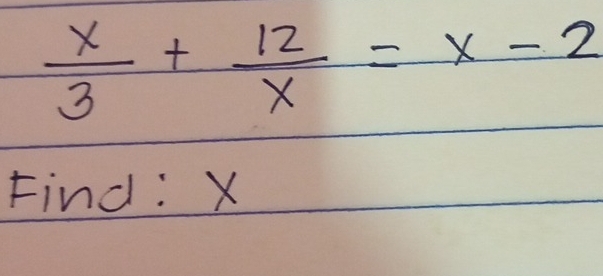 x/3 + 12/x = x - 2
Find: x